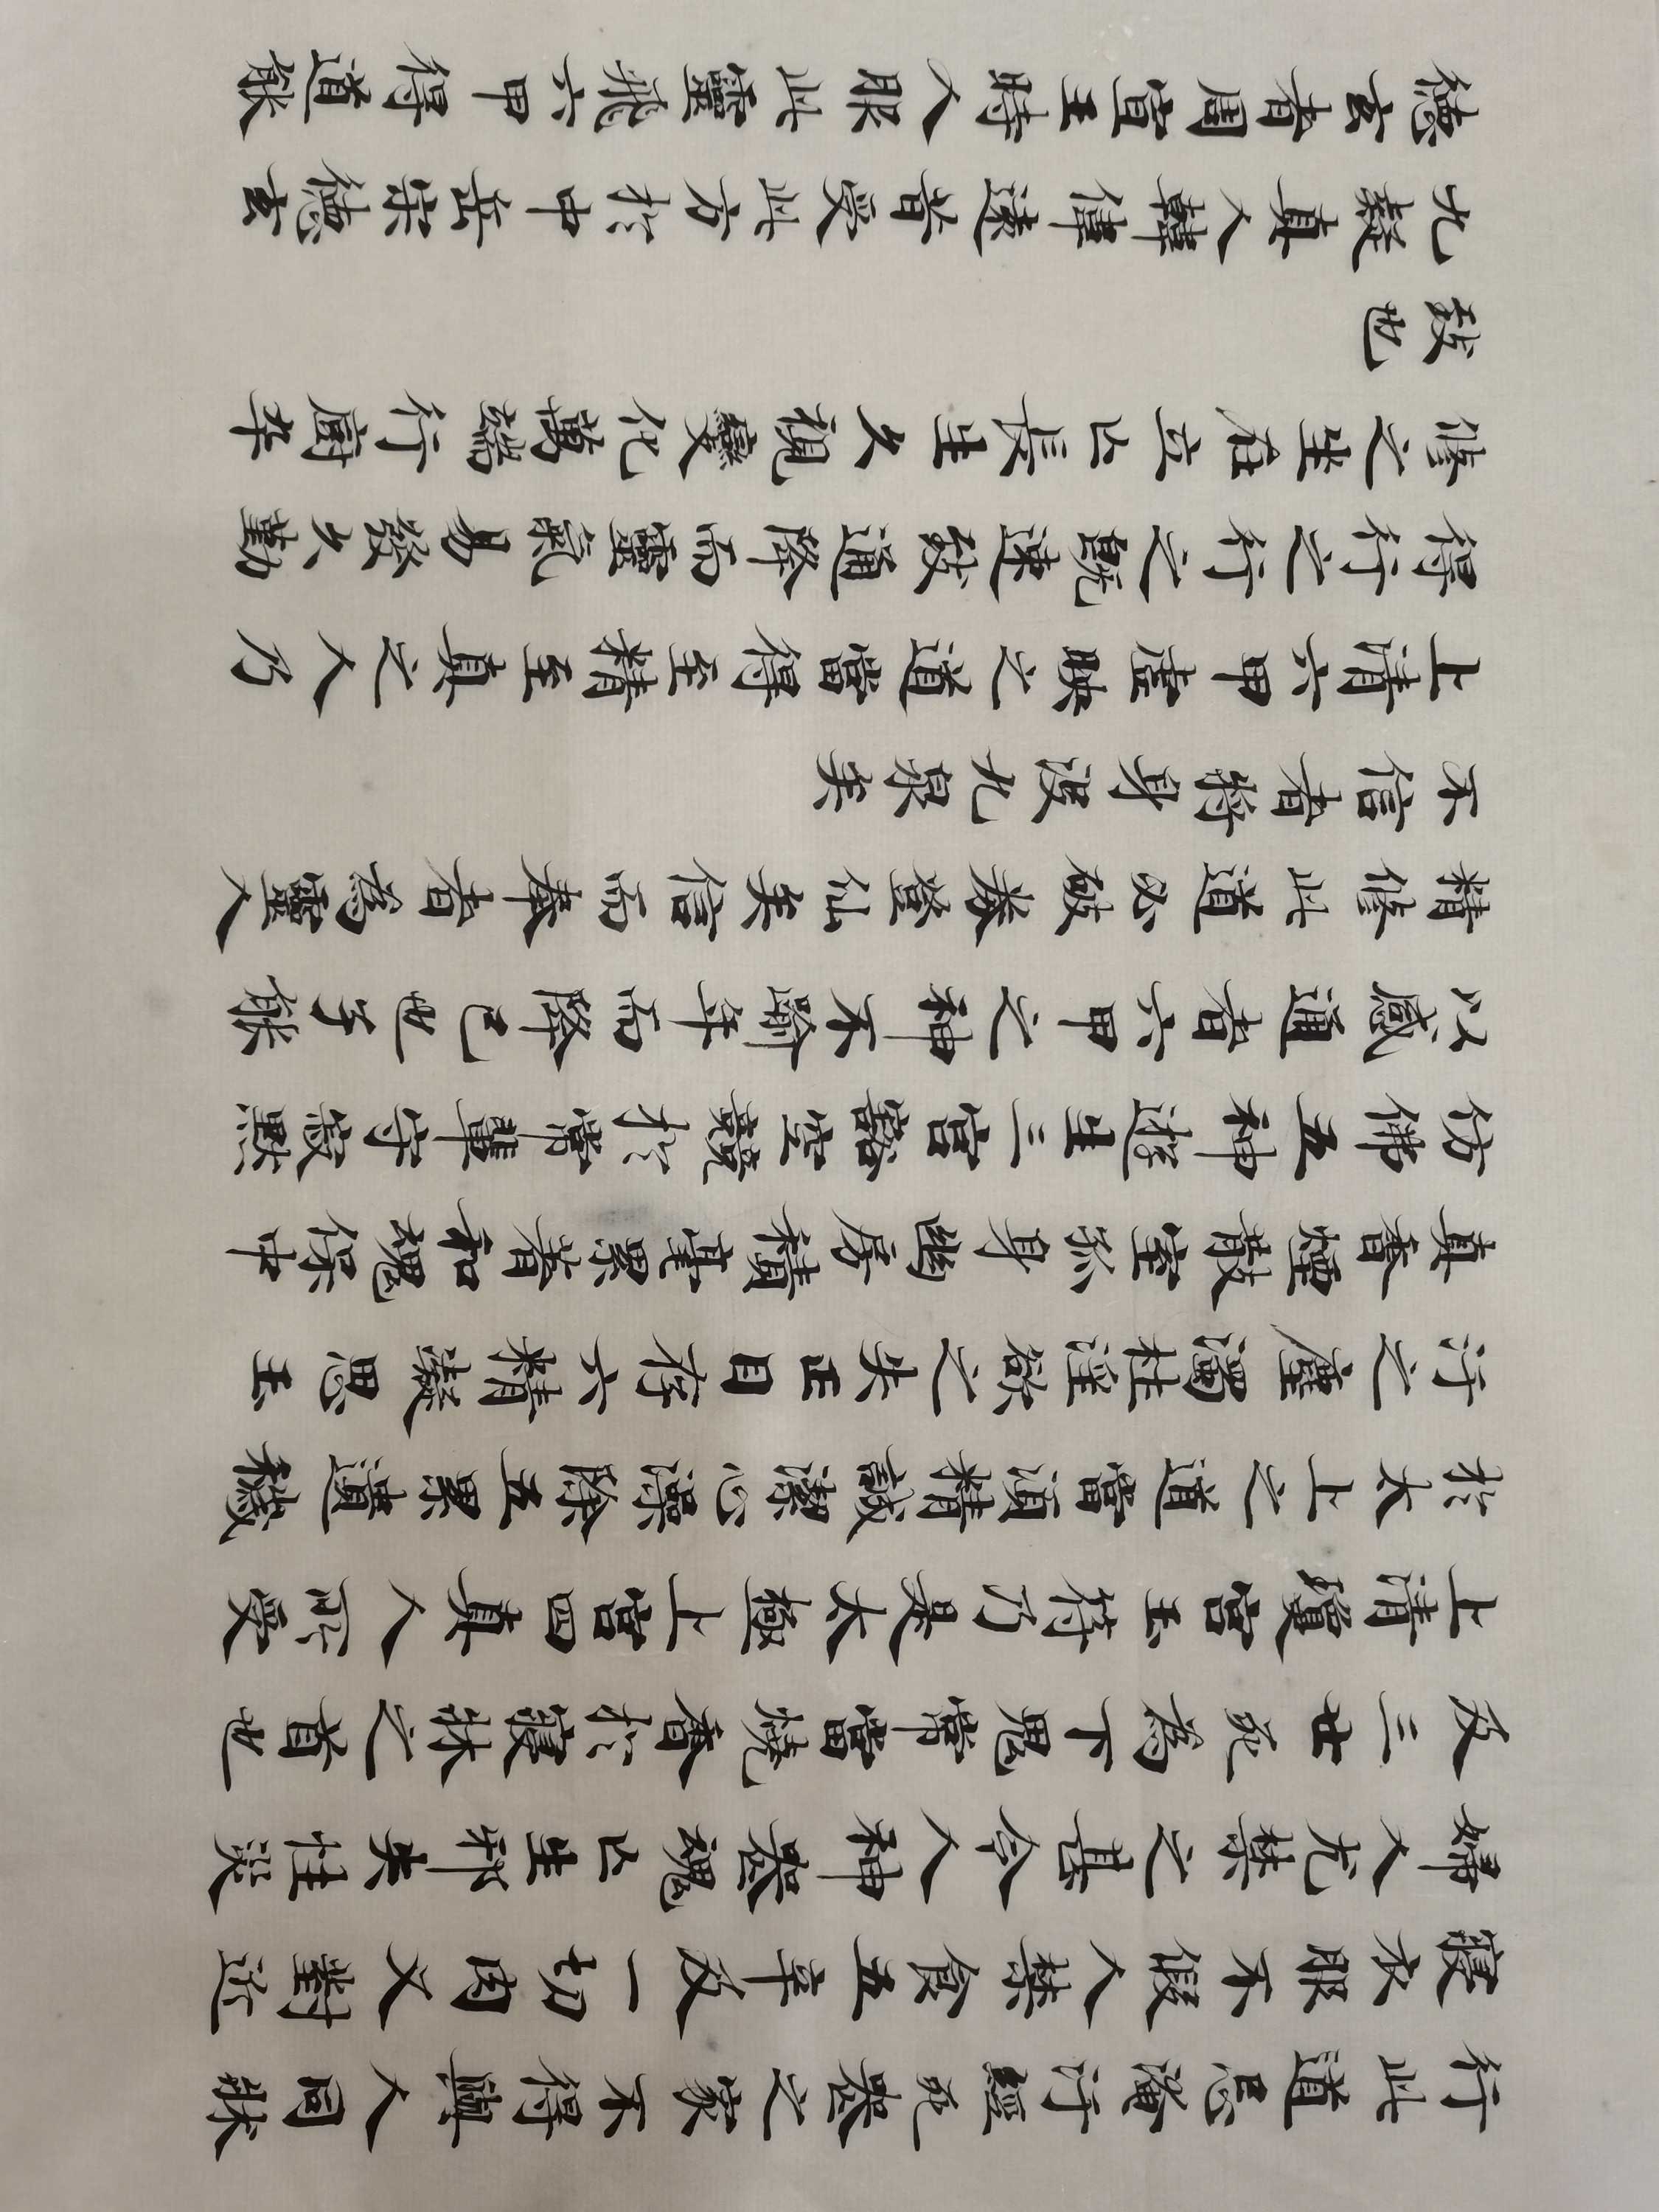 行此道忌淹汙經死喪之家不得與人同牀
寢衣服不假人禁食五辛及一切肉又對近
婦人尤禁之甚令人神喪魂亡生邪失性災
及三世死為下鬼常當燒香於寢牀之首也
上清瓊宮玉符乃是太極上宮四真人所受
於太上之道當須精誠潔心澡除五累遺穢
汙之塵濁杜淫欲之失正目存六精凝思玉
真香煙散室孤身幽房積毫累著和魂保中
仿佛五神遊生三宮豁空競於常輩守寂默
以感通者六甲之神不踰年而降己也子能
精修此道必破券登仙矣信而奉者為靈人
不信者將身沒九泉矣
上清六甲虛映之道當得至精至真之人乃
得行之行之既速致通降而靈氣易發久勤
修之坐在立亡長生久視變化萬端行廚卒
致也
九疑真人韓偉遠昔受此方於中岳宋德玄
德玄者周宣王時人服此靈飛六甲得道能